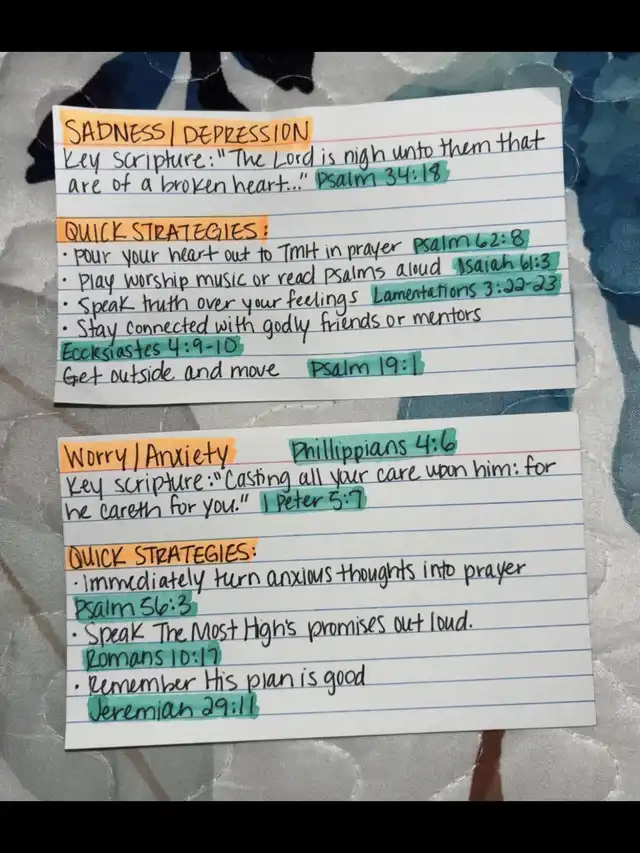 SADNESS/DEPRESSION
Key Scripture: "The Lord is nigh unto them that
are of a broken heart..." Psalm 34:18
QUICK STRATEGIES:
• Pour your heart out to TMH in prayer Psalm 62:8
• Play worship music or read Psalms aloud Isaiah 61:3
• Speak truth over your feelings Lamentations 3:22-23
• Stay connected with godly friends or mentors
Ecclesiastes 4:9-10
Get outside and move Psalm 19:1
Worry/Anxiety Phillippians 4:6
Key scripture: "Casting all your care upon him: for
he careth for you." 1 Peter 5:7
QUICK STRATEGIES:
• Immediately turn anxious thoughts into prayer
Psalm 56:3
• Speak The Most High's promises out loud.
Romans 10:17
• Remember His plan is good
Jeremiah 29:11